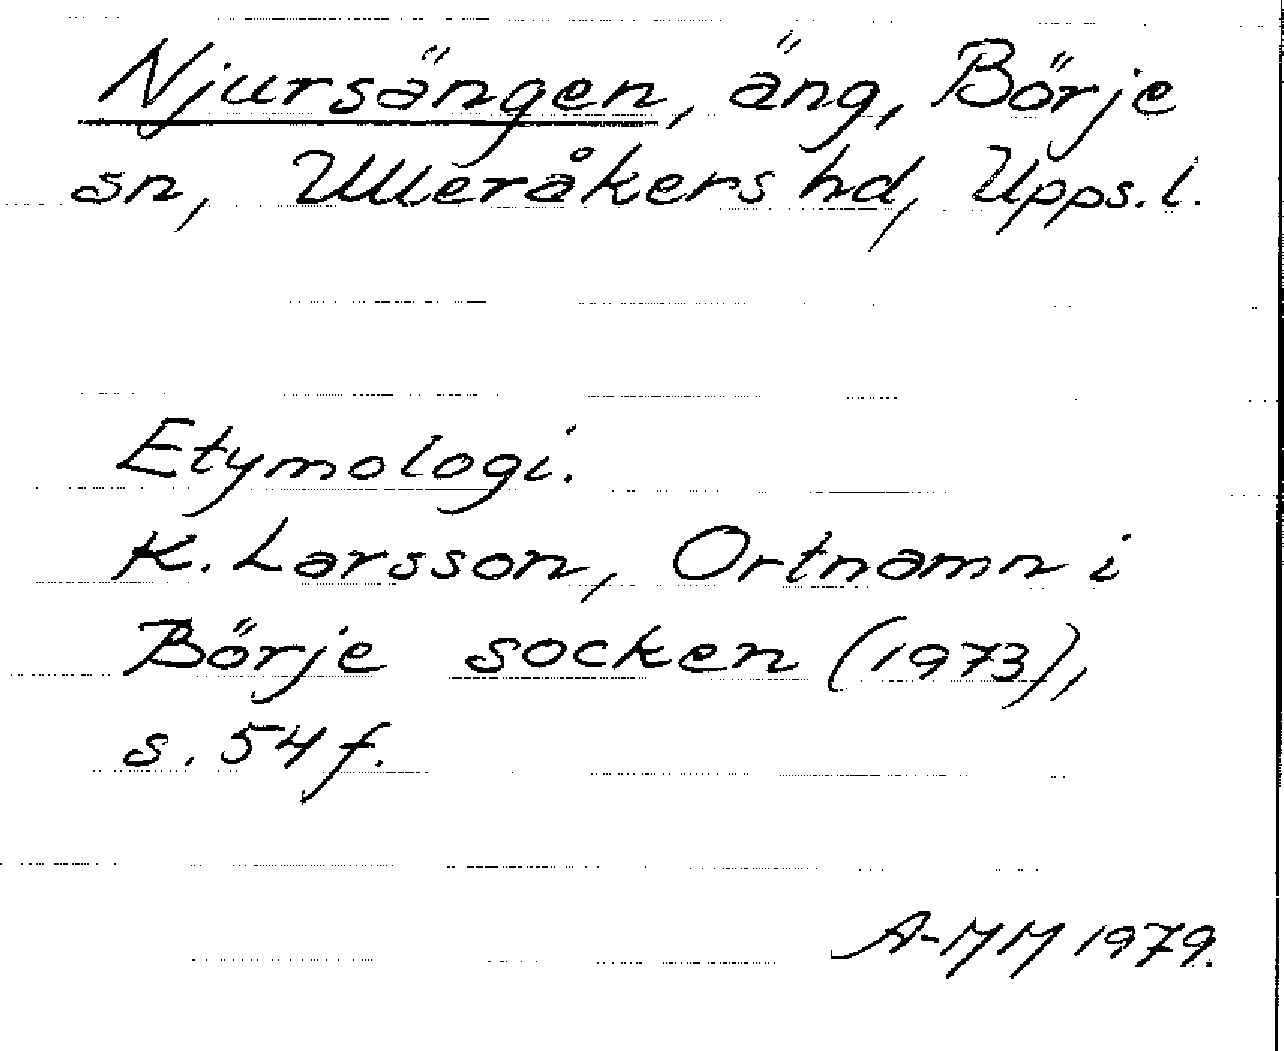 Njursängen, äng, Börje
sn, Ulleråkers hd, Upps. l.
Etymologi.
K. Larsson, Ortnamn i
Börje socken (1973),
s. 54 f.
A-MM 1979.